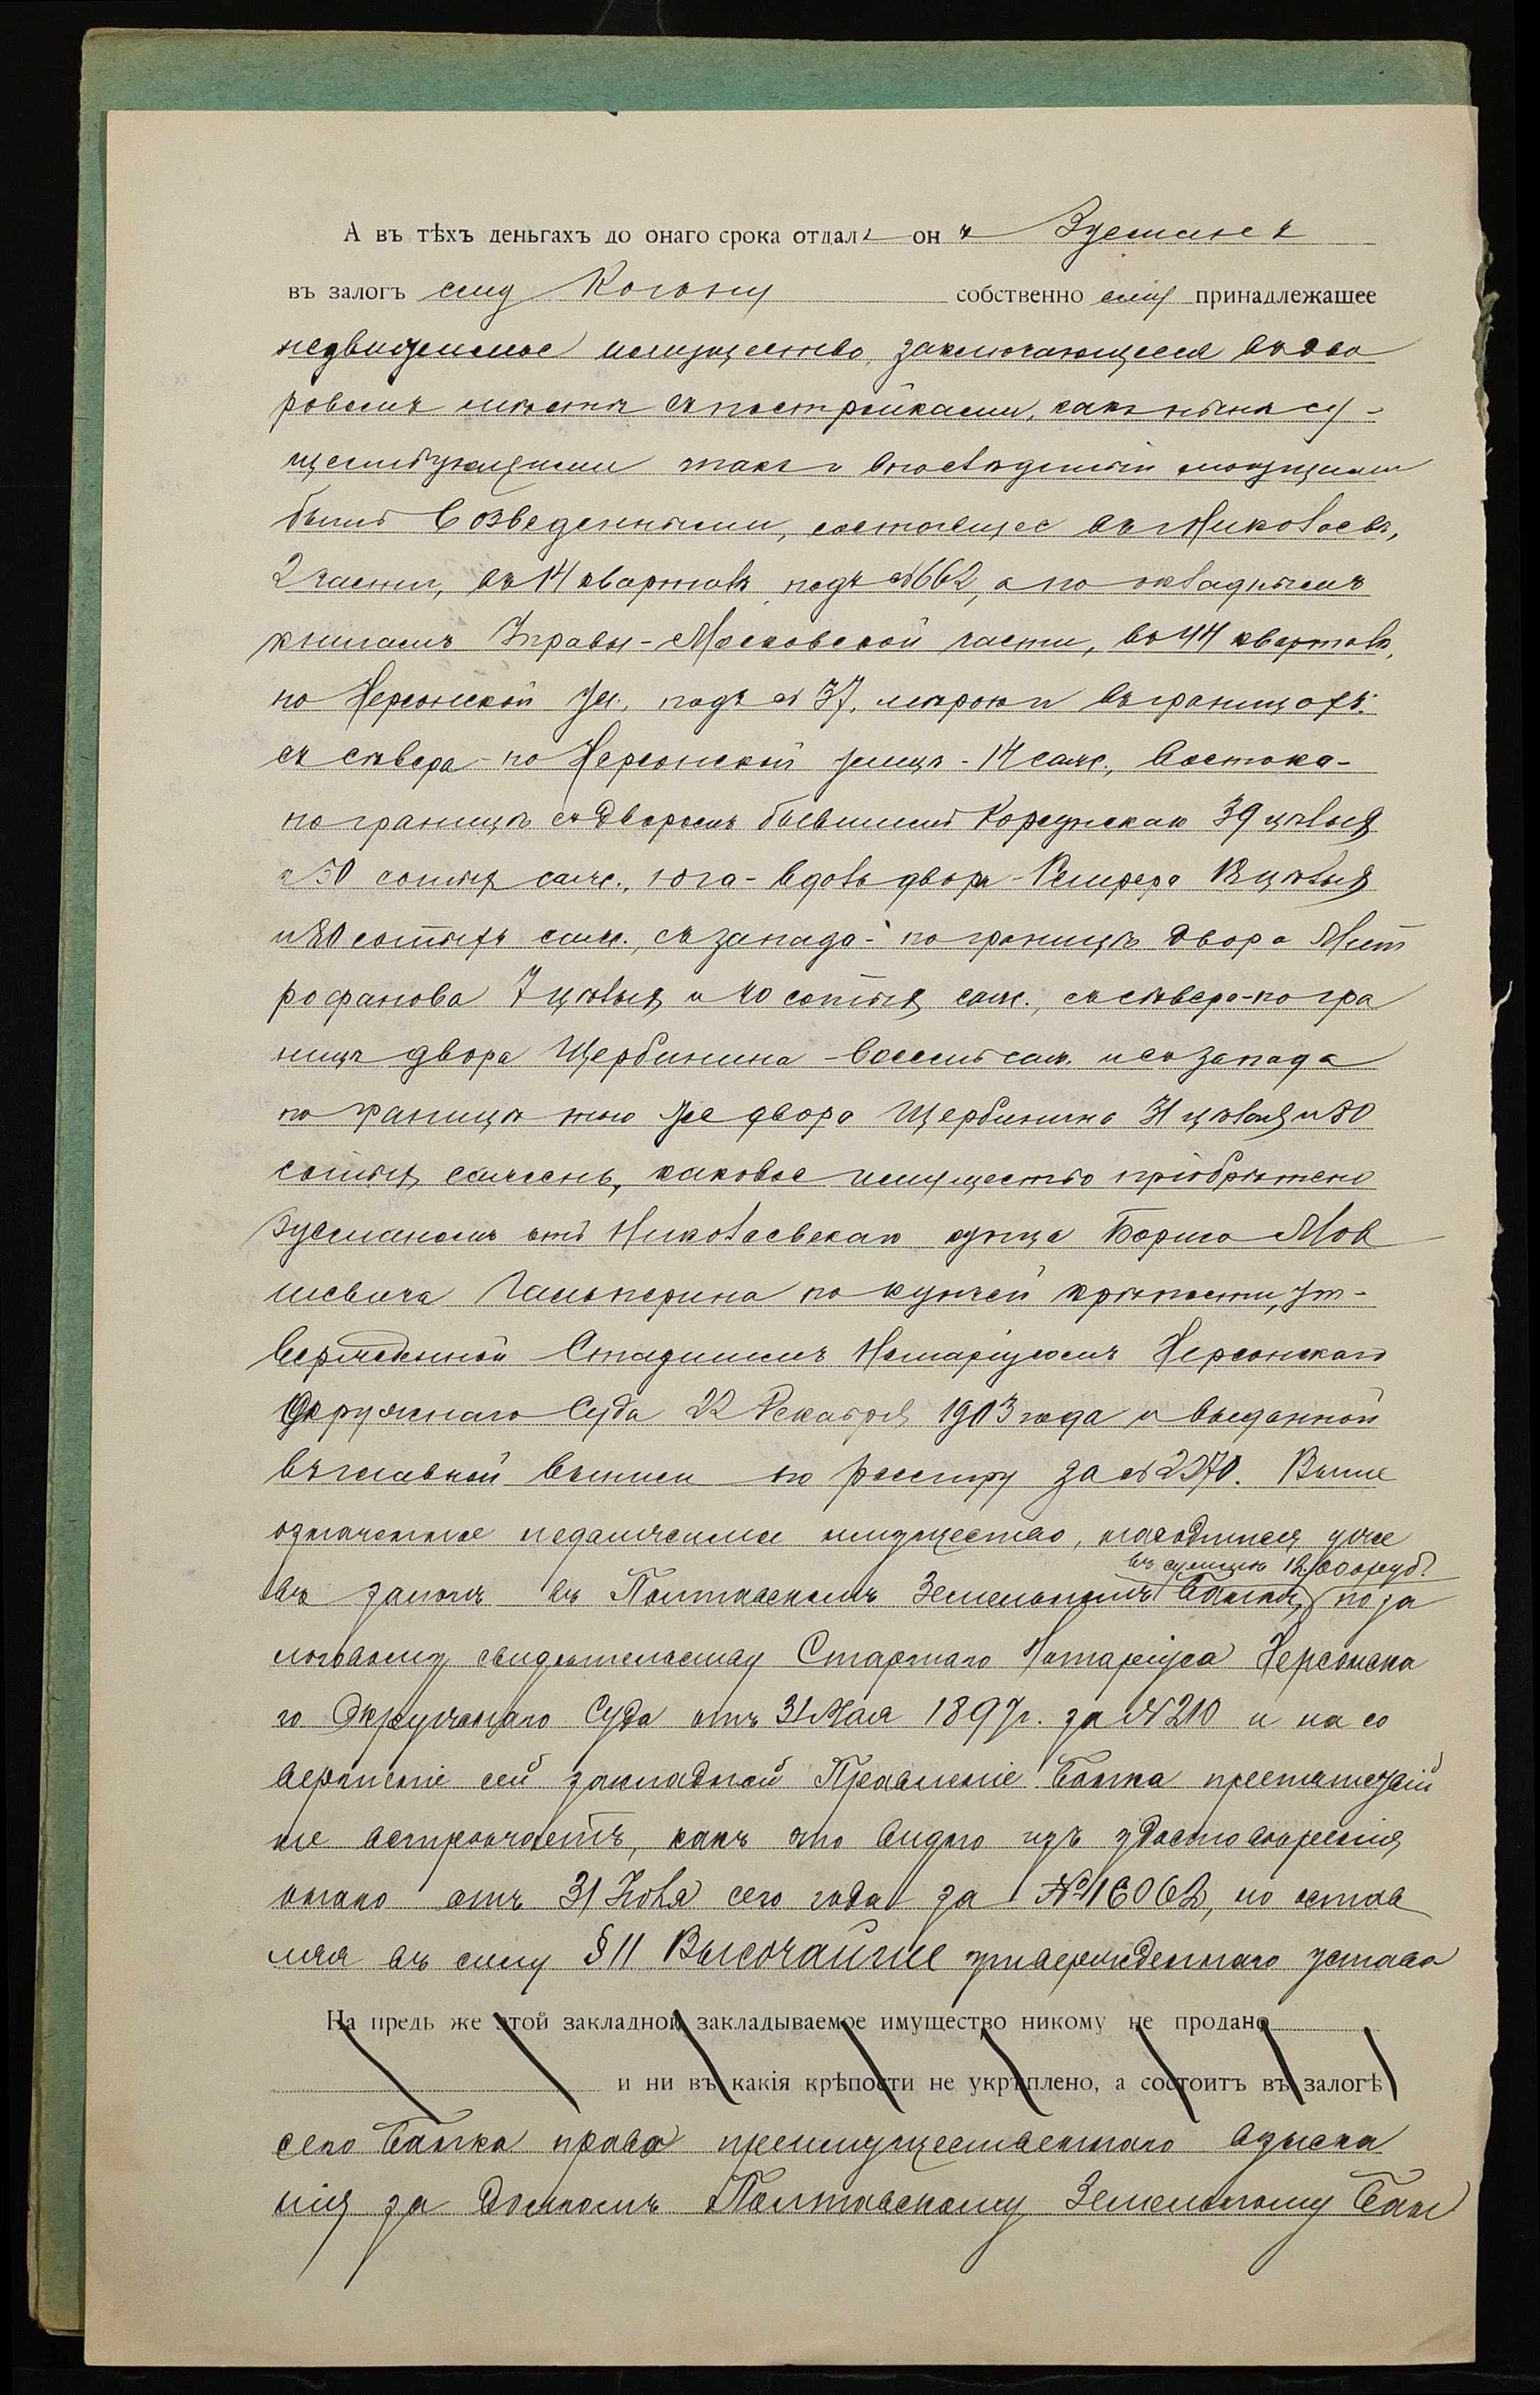 А въ тѣхъ деньгахъ до онаго срока отдалъ онъ Зусманъ
въ залогъ ему Когану собственно ему принадлежащее
недвижимое имущество, заключающееся въ дво
ровомъ мѣстѣ съ постройками, какъ нынѣ су-
ществующими такъ и впослѣдствіи могущими
быть возведенными, состоящее въ г. Николаевѣ,
2 части, въ 14 кварталѣ, подъ № 662, а по окладнымъ
книгамъ Управы - Московской части, въ 44 кварталѣ,
по Херсонской ул., подъ № 37, мѣрою и въ границахъ:
съ сѣвера - по Херсонской улицѣ - 14 саж., востока -
по границѣ съ дворомъ бывшимъ 39 цѣлыхъ
и 50 сотыхъ саж., юга - вдоль двора цѣлыхъ
и 80 сотыхъ саж., съ запада - по границѣ двора Мит
рофанова 7 цѣлыхъ и 40 сотыхъ саж., съ сѣвера - по гра
ницѣ двора Щербинина - восемь саж. и съ запада
по границѣ того же двора Щербинина 31 цѣлая и 80
сотыхъ сажень, каковое имущество пріобрѣтено
Зусманомъ отъ Николаевскаго купца Бориса Мов
шевича Гальперина по купчей крѣпости, ут-
вержденной Старшимъ Нотаріусомъ Херсонскаго
Окружнаго Суда 22 Декабря 1903 года и выданной
въ главной выписи по реестру за № 2370. Выше
означенное недвижимое имущество, находится уже
въ суммѣ руб.
въ залогѣ въ Полтавскомъ Земельномъ Банкѣ, по за
логовому свидѣтельству Старшаго Нотаріуса Херсонска
го Окружнаго Суда отъ 31 Мая 1897 г. за № 210 и на со
вершеніе сей закладной Правленіе Банка препятствій
не встрѣчаетъ, какъ это видно изъ удостовѣренія
онаго отъ 31 Іюля сего года за № 16062, но остав
ляя въ силу § 11 Высочайше утвержденнаго устава
На предь же этой закладной закладываемое имущество никому не продано
и ни въ какія крѣпости не укрѣплено, а состоитъ въ залогѣ
сего Банка право преимущественнаго взыска
нія за долгомъ Полтавскому Земельному Бан